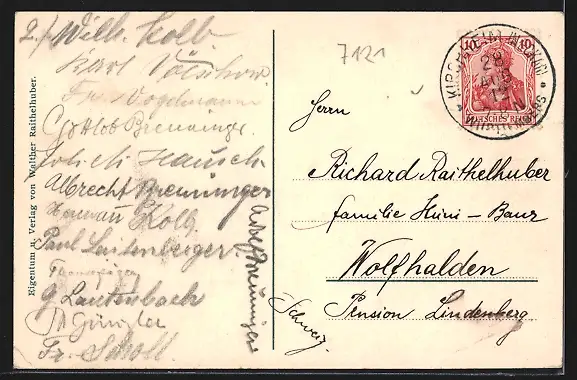 2./ Wilh. Kolb.
Karl
Fr. Vogelmann
Gottlob Breuninger
Hausch
Albrecht Breuninger
Hermann Kolb.
Paul Laitenberger.
G. Lautenbach
Fr. Scholl.
Adolf Breuninger
Eigentum u. Verlag von Walther Raithelhuber.
7121
KIRCHHEIM (NECKAR)
28
AUG
WÜRTTEMBG
10 10
DEUTSCHES REICH
Herrn
Richard Raithelhuber
familie Hüni - Banz
Wolfhalden
Pension Lindenberg
Schweiz.